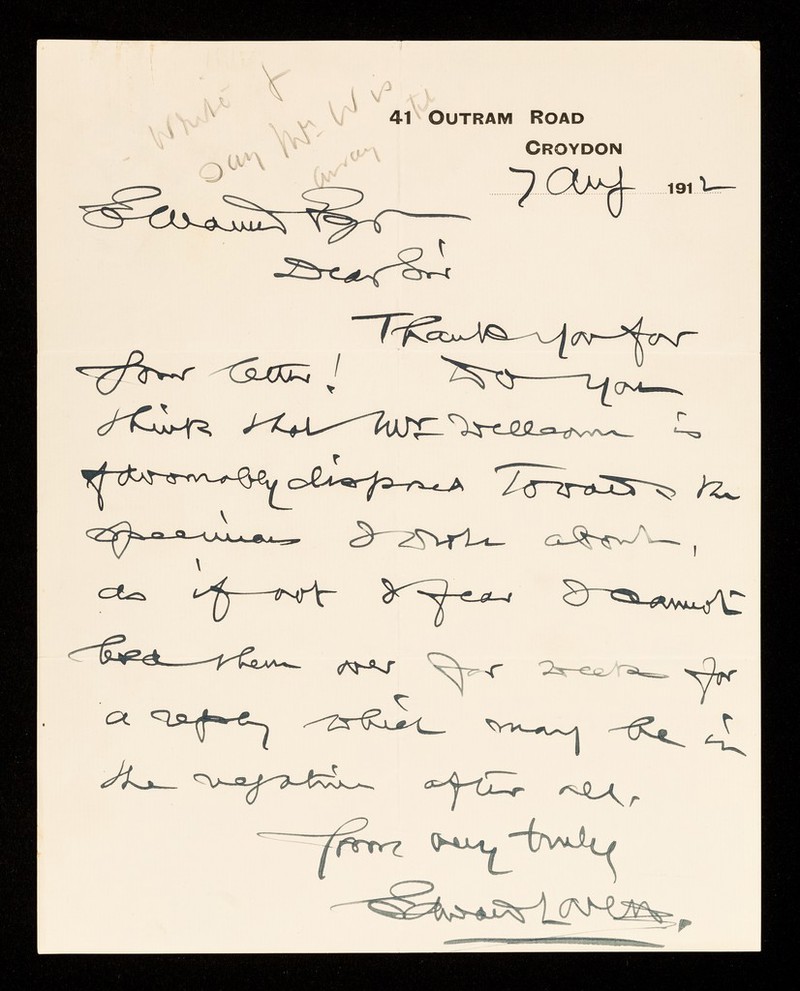 write &
say Mr. W is
away till
41 OUTRAM ROAD
CROYDON
7 Aug 1912
Dear Sir
Thank you for
your letter! Do you
think that Mr. Wellcome is
favourably disposed towards the
specimens I wrote about,
as if not I fear I cannot
them over for weeks for
a reply which may be in
the negative after all.
Yours very truly
Edward Lovett.